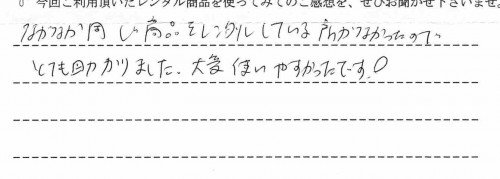 今回ご利用頂いたレンタル商品を使ってみてのご感想を、ぜひお聞かせ下さいませ。
なかなか同じ商品をレンタルしている所がなかったので
とても助かりました。大変使いやすかったです!○